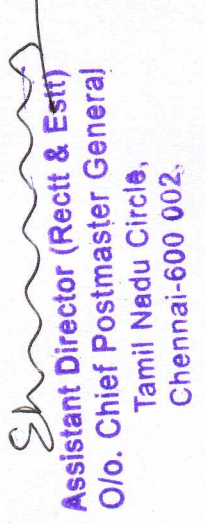 Assistant Director (Rectt & Estt)
O/o. Chief Postmaster General
Tamil Nadu Circle,
Chennai-600 002.